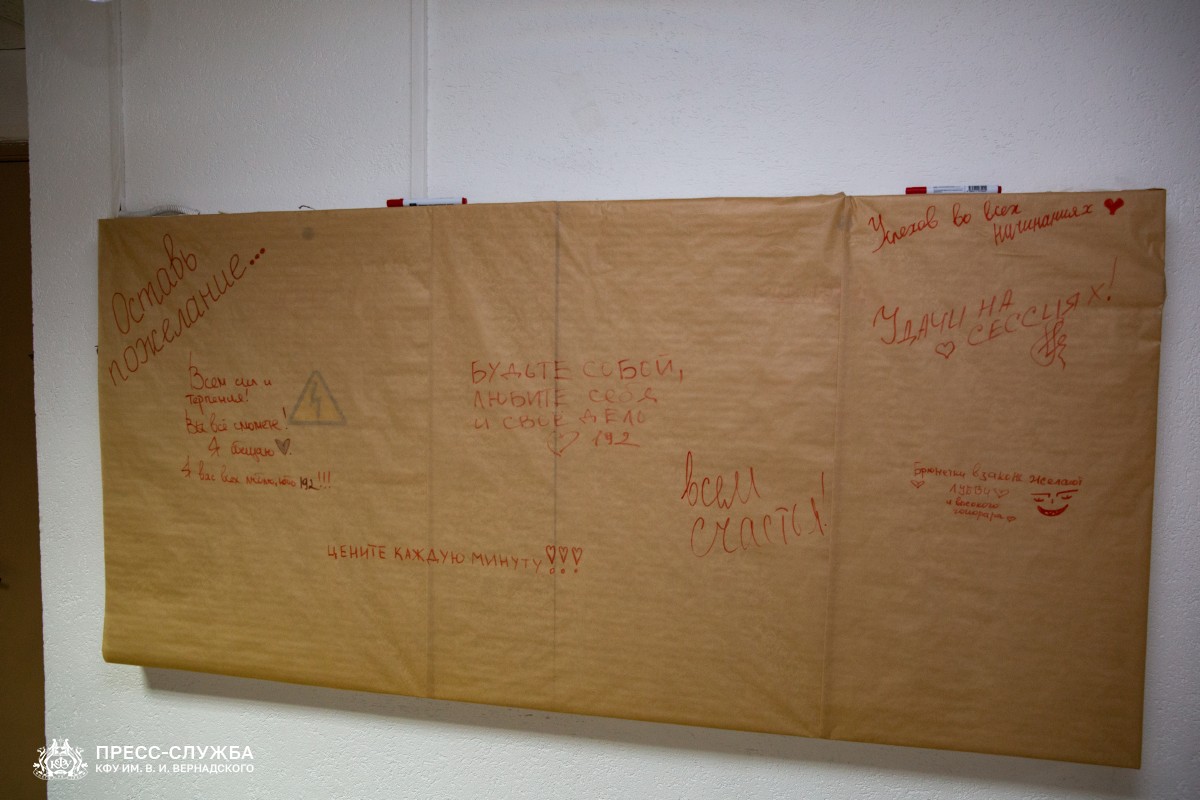 Оставь
пожелание...
Всем сил и
терпения!
Вы всё сможете!
Я обещаю
Я вас всех люблю, 192!!!
БУДЬТЕ СОБОЙ,
ЛЮБИТЕ СЕБЯ
И СВОЕ ДЕЛО
192
ЦЕНИТЕ КАЖДУЮ МИНУТУ!!!
Всем
счастья!
Успехов во всех
начинаниях
УДАЧИ НА
СЕССИЯХ!
Брюнетки в законе желают
ЛУБВИ
и высокого
гонорара
ПРЕСС-СЛУЖБА
КФУ ИМ. В. И. ВЕРНАДСКОГО
КФУ